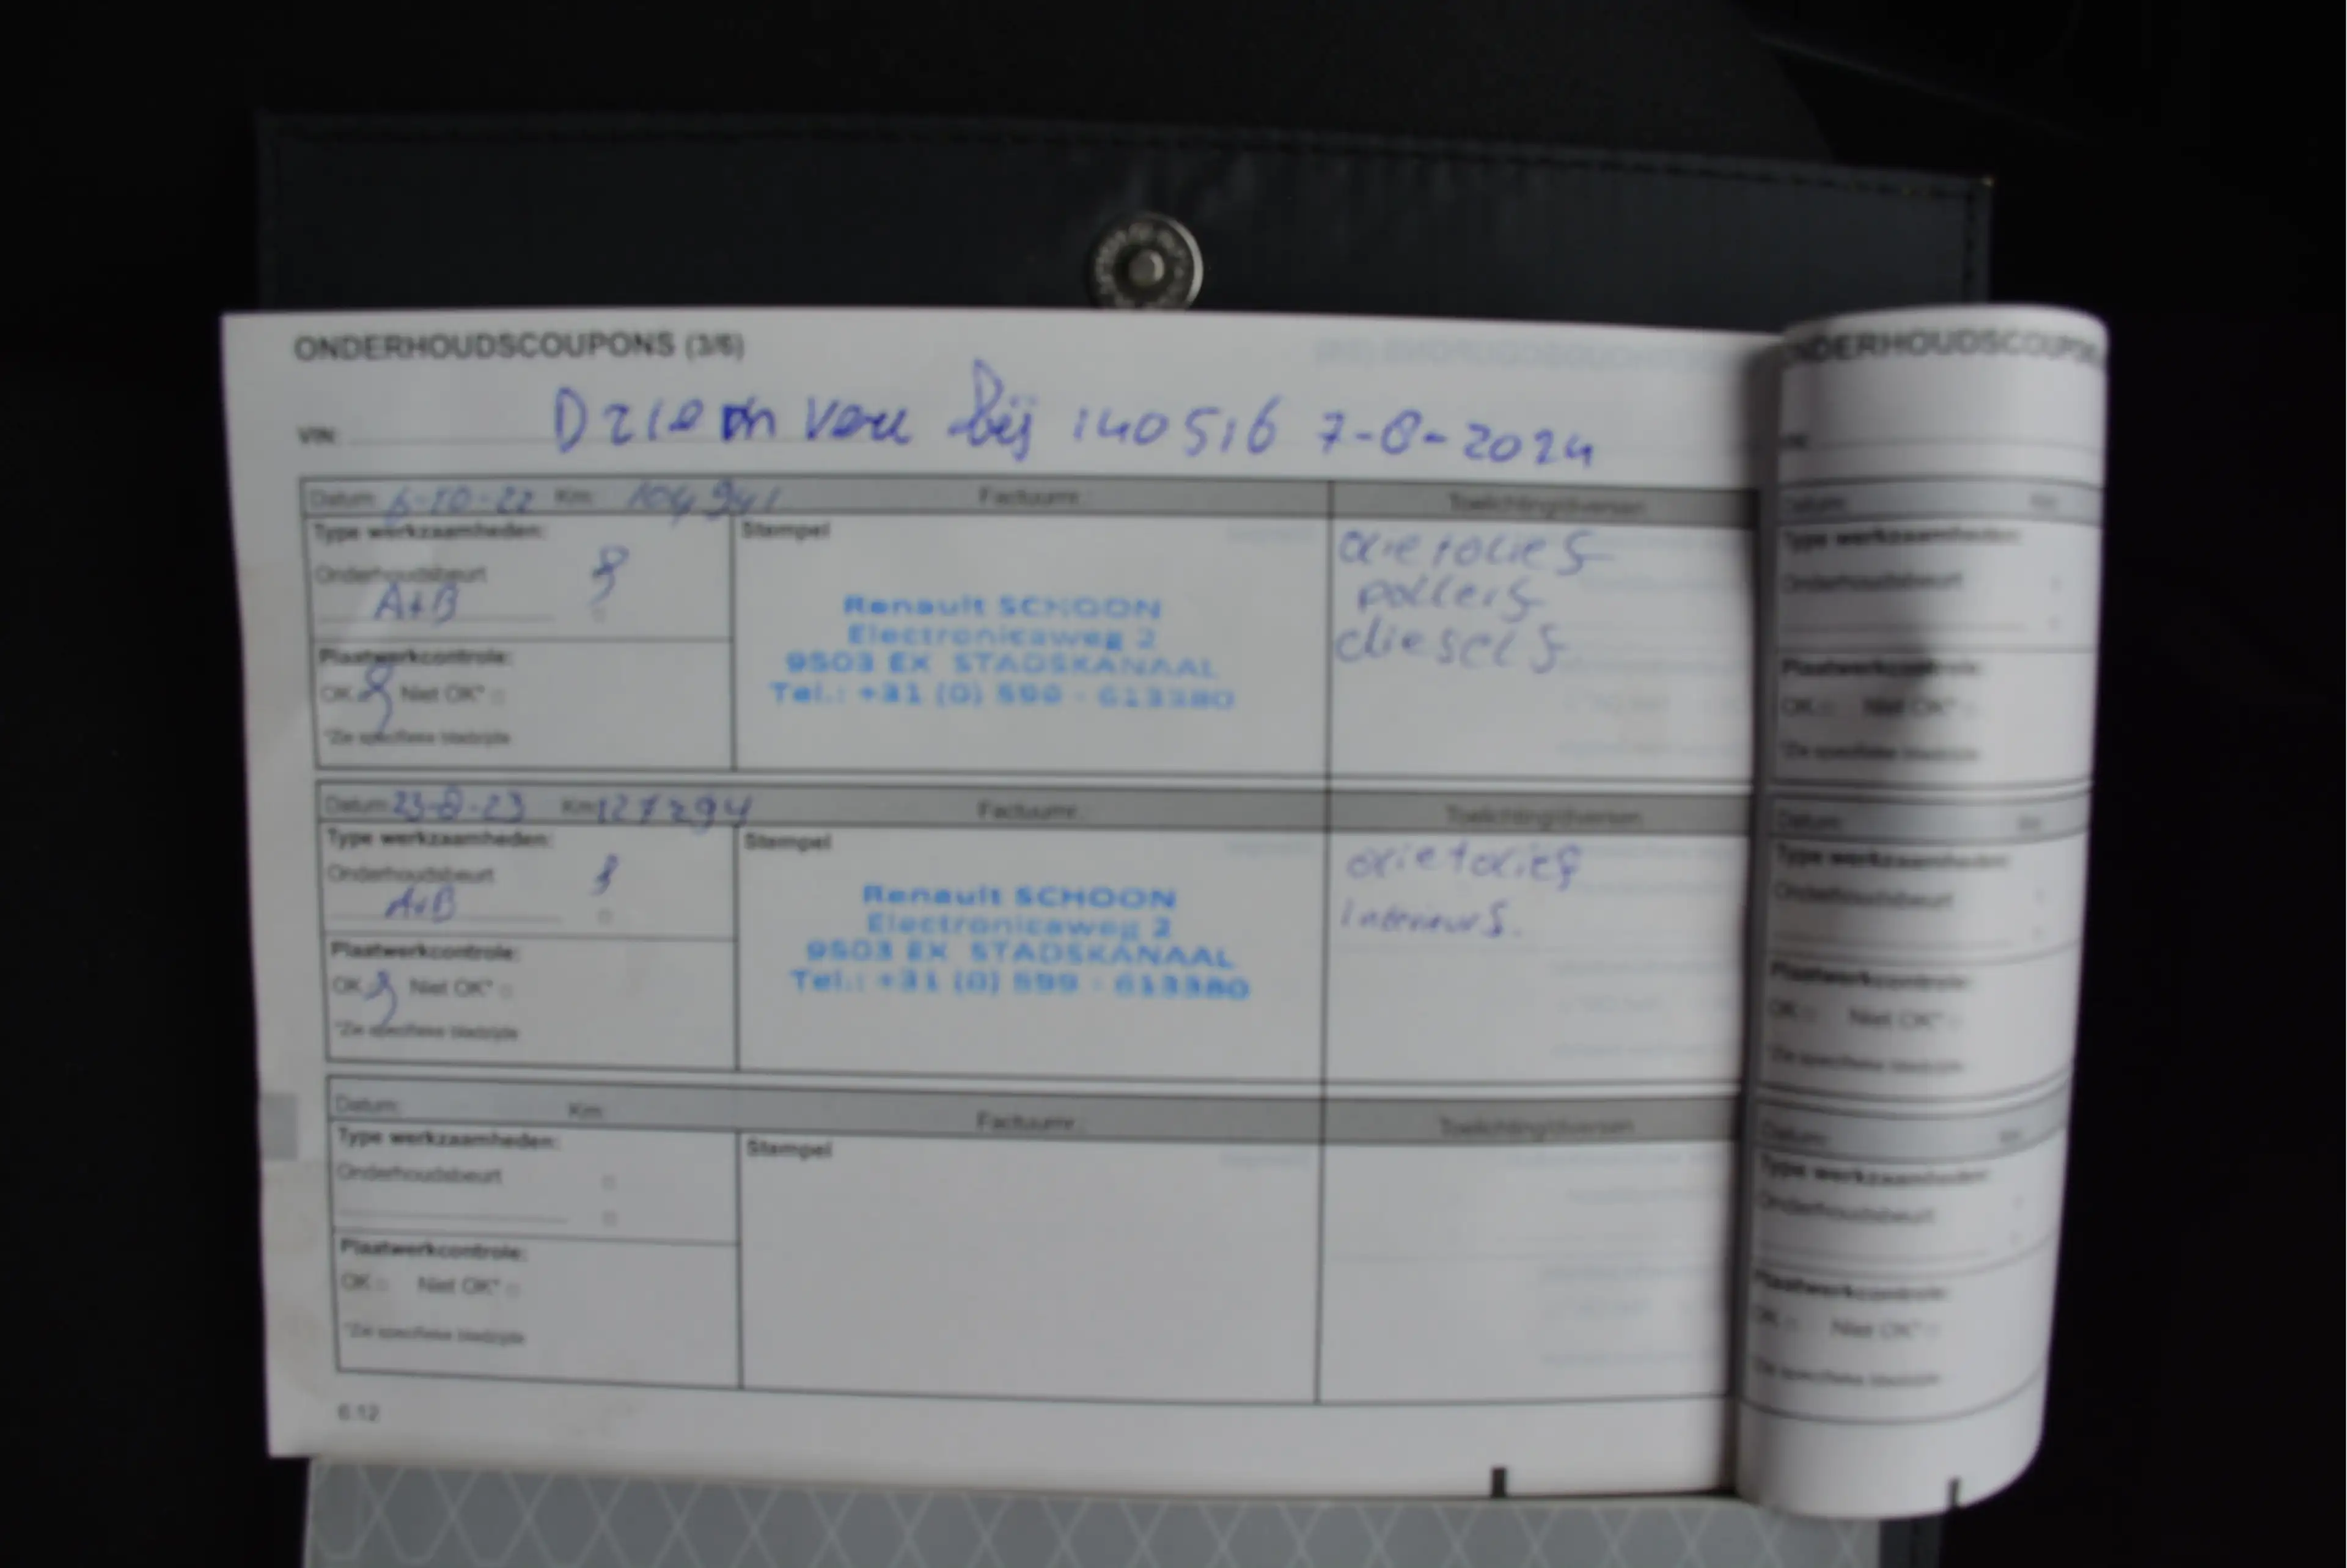 ONDERHOUDSCOUPONS (3/6)
VIN: bij 140516 7-8-2024
Datum: 6-10-22 Km: 104941 Factuurnr.: Toelichting/diversen
Type werkzaamheden:
Onderhoudsbeurt
A+B
Plaatwerkcontrole:
OK Niet OK*
*Zie specifieke bladzijde
Stempel
Renault SCHOON
Electronicaweg 2
9503 EX STADSKANAAL
Tel.: +31 (0) 599 - 613380
olie + olief
pollenf
dieself
Datum: 23-8-23 Km: 127294 Factuurnr.: Toelichting/diversen
Type werkzaamheden:
Onderhoudsbeurt
A+B
Plaatwerkcontrole:
OK Niet OK*
*Zie specifieke bladzijde
Stempel
Renault SCHOON
Electronicaweg 2
9503 EX STADSKANAAL
Tel.: +31 (0) 599 - 613380
olie + olief
interieurf.
Datum: Km: Factuurnr.: Toelichting/diversen
Type werkzaamheden:
Onderhoudsbeurt
Plaatwerkcontrole:
OK Niet OK*
*Zie specifieke bladzijde
Stempel
6.12
Datum: Km:
Type werkzaamheden:
Onderhoudsbeurt
Plaatwerkcontrole:
OK Niet OK*
*Zie specifieke bladzijde
Datum: Km:
Type werkzaamheden:
Onderhoudsbeurt
Plaatwerkcontrole:
OK Niet OK*
*Zie specifieke bladzijde
Datum: Km:
Type werkzaamheden:
Onderhoudsbeurt
Plaatwerkcontrole:
OK Niet OK*
*Zie specifieke bladzijde